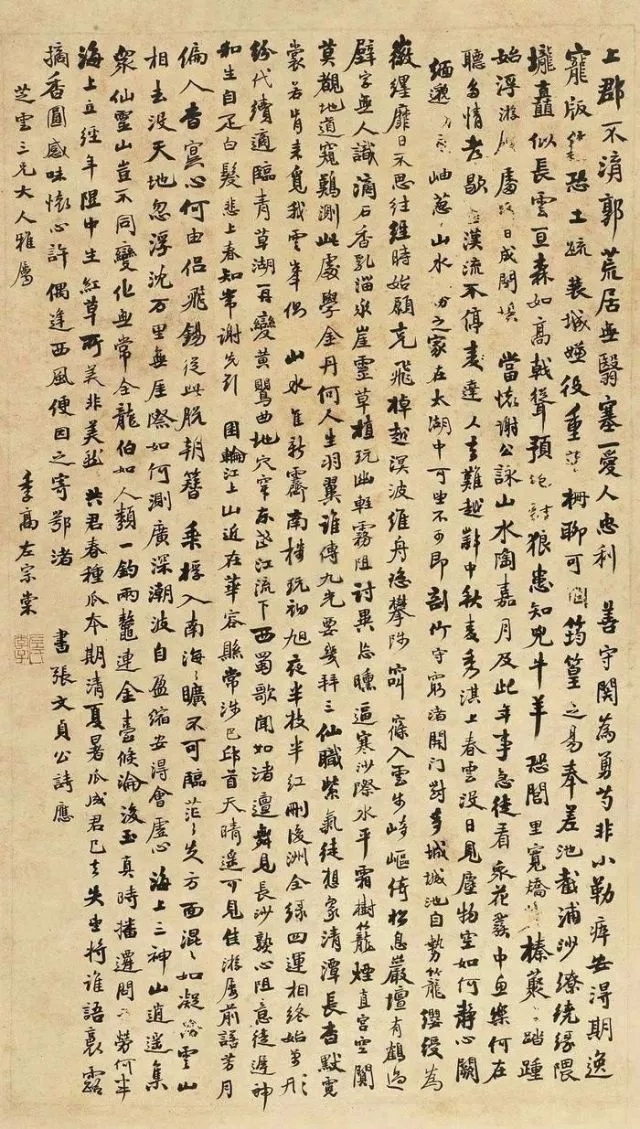 上郡不消郭荒居無翳塞一愛人忠利 善守閑為勇 非小勒痒安得期逸
寵版 恐土疏裝城嫌役重 柵聊可 筠篁之易奉差池截浦沙繚繞緣隈
壠矗似長雲亙森如高戟聳預 狼患知免牛羊恐閭里寬矯 榛藂踏踵
始浮游 廬 日成閑 當怯謝公詠山水陶嘉月及此年事急徒看衆花發中魚樂何在
聽鳥情 歇 漢流不停 達人 難越 中秋麦秀淇上春雲没日見塵物空如何靜心闕
緬邈 岫 山水 之家在太湖中可望不可即 剖竹守窮渚開門對奇城城池自勢籠纓綬為
徽纆靡日不思往經時始願克飛棹越溟波維舟恣攀陟窈窱入雲步崎嶇倚松息巖壇有鶴過
壁字無人識滴石香乳溜 崖靈草植玩幽輕霧阻討異忘曛逼寒沙際水平霜樹籠煙直宮空閴
莫覩地道窺難測此處學金丹何人生羽翼誰傳九光要幾拜三仙職紫氣徒想象清潭長杳默霓
裳若肯來覓我雲峯側 山水佳新霽南樓玩初旭夜半枝半紅 後洲全綠四運相終始萬形
紛代續適臨青草湖再變黃鸎曲地穴穿東 江流下西蜀歌聞 渚邅舞見長沙 心阻意徒遲神
和生自足白髮悲上春知常謝先引 圉輪江上山近在華容縣常涉巴邱首天晴遙可見佳游屡前諾芳月
偏入杳冥心何由侶飛錫從此脱朝簪 乘桴入南海海曠不可臨茫茫失方面混混如凝陰雲山
相去没天地忽浮沈万里無厓際如何測廣深潮波自盈缩安得會虛心 海上三神山逍遥集
衆仙靈山豈不同變化無常全龍伯如人類一釣兩鼇連金臺候淪没玉真時播遷問 勞何事
海上立經年 中生紅草所美非美然共君春種瓜本期清夏暑瓜成君已去失望將誰語裛露
摘香園感味懷心許偶逢西風便因之寄鄂渚 書張文貞公詩應
芝雲三兄大人雅屬
季高左宗棠